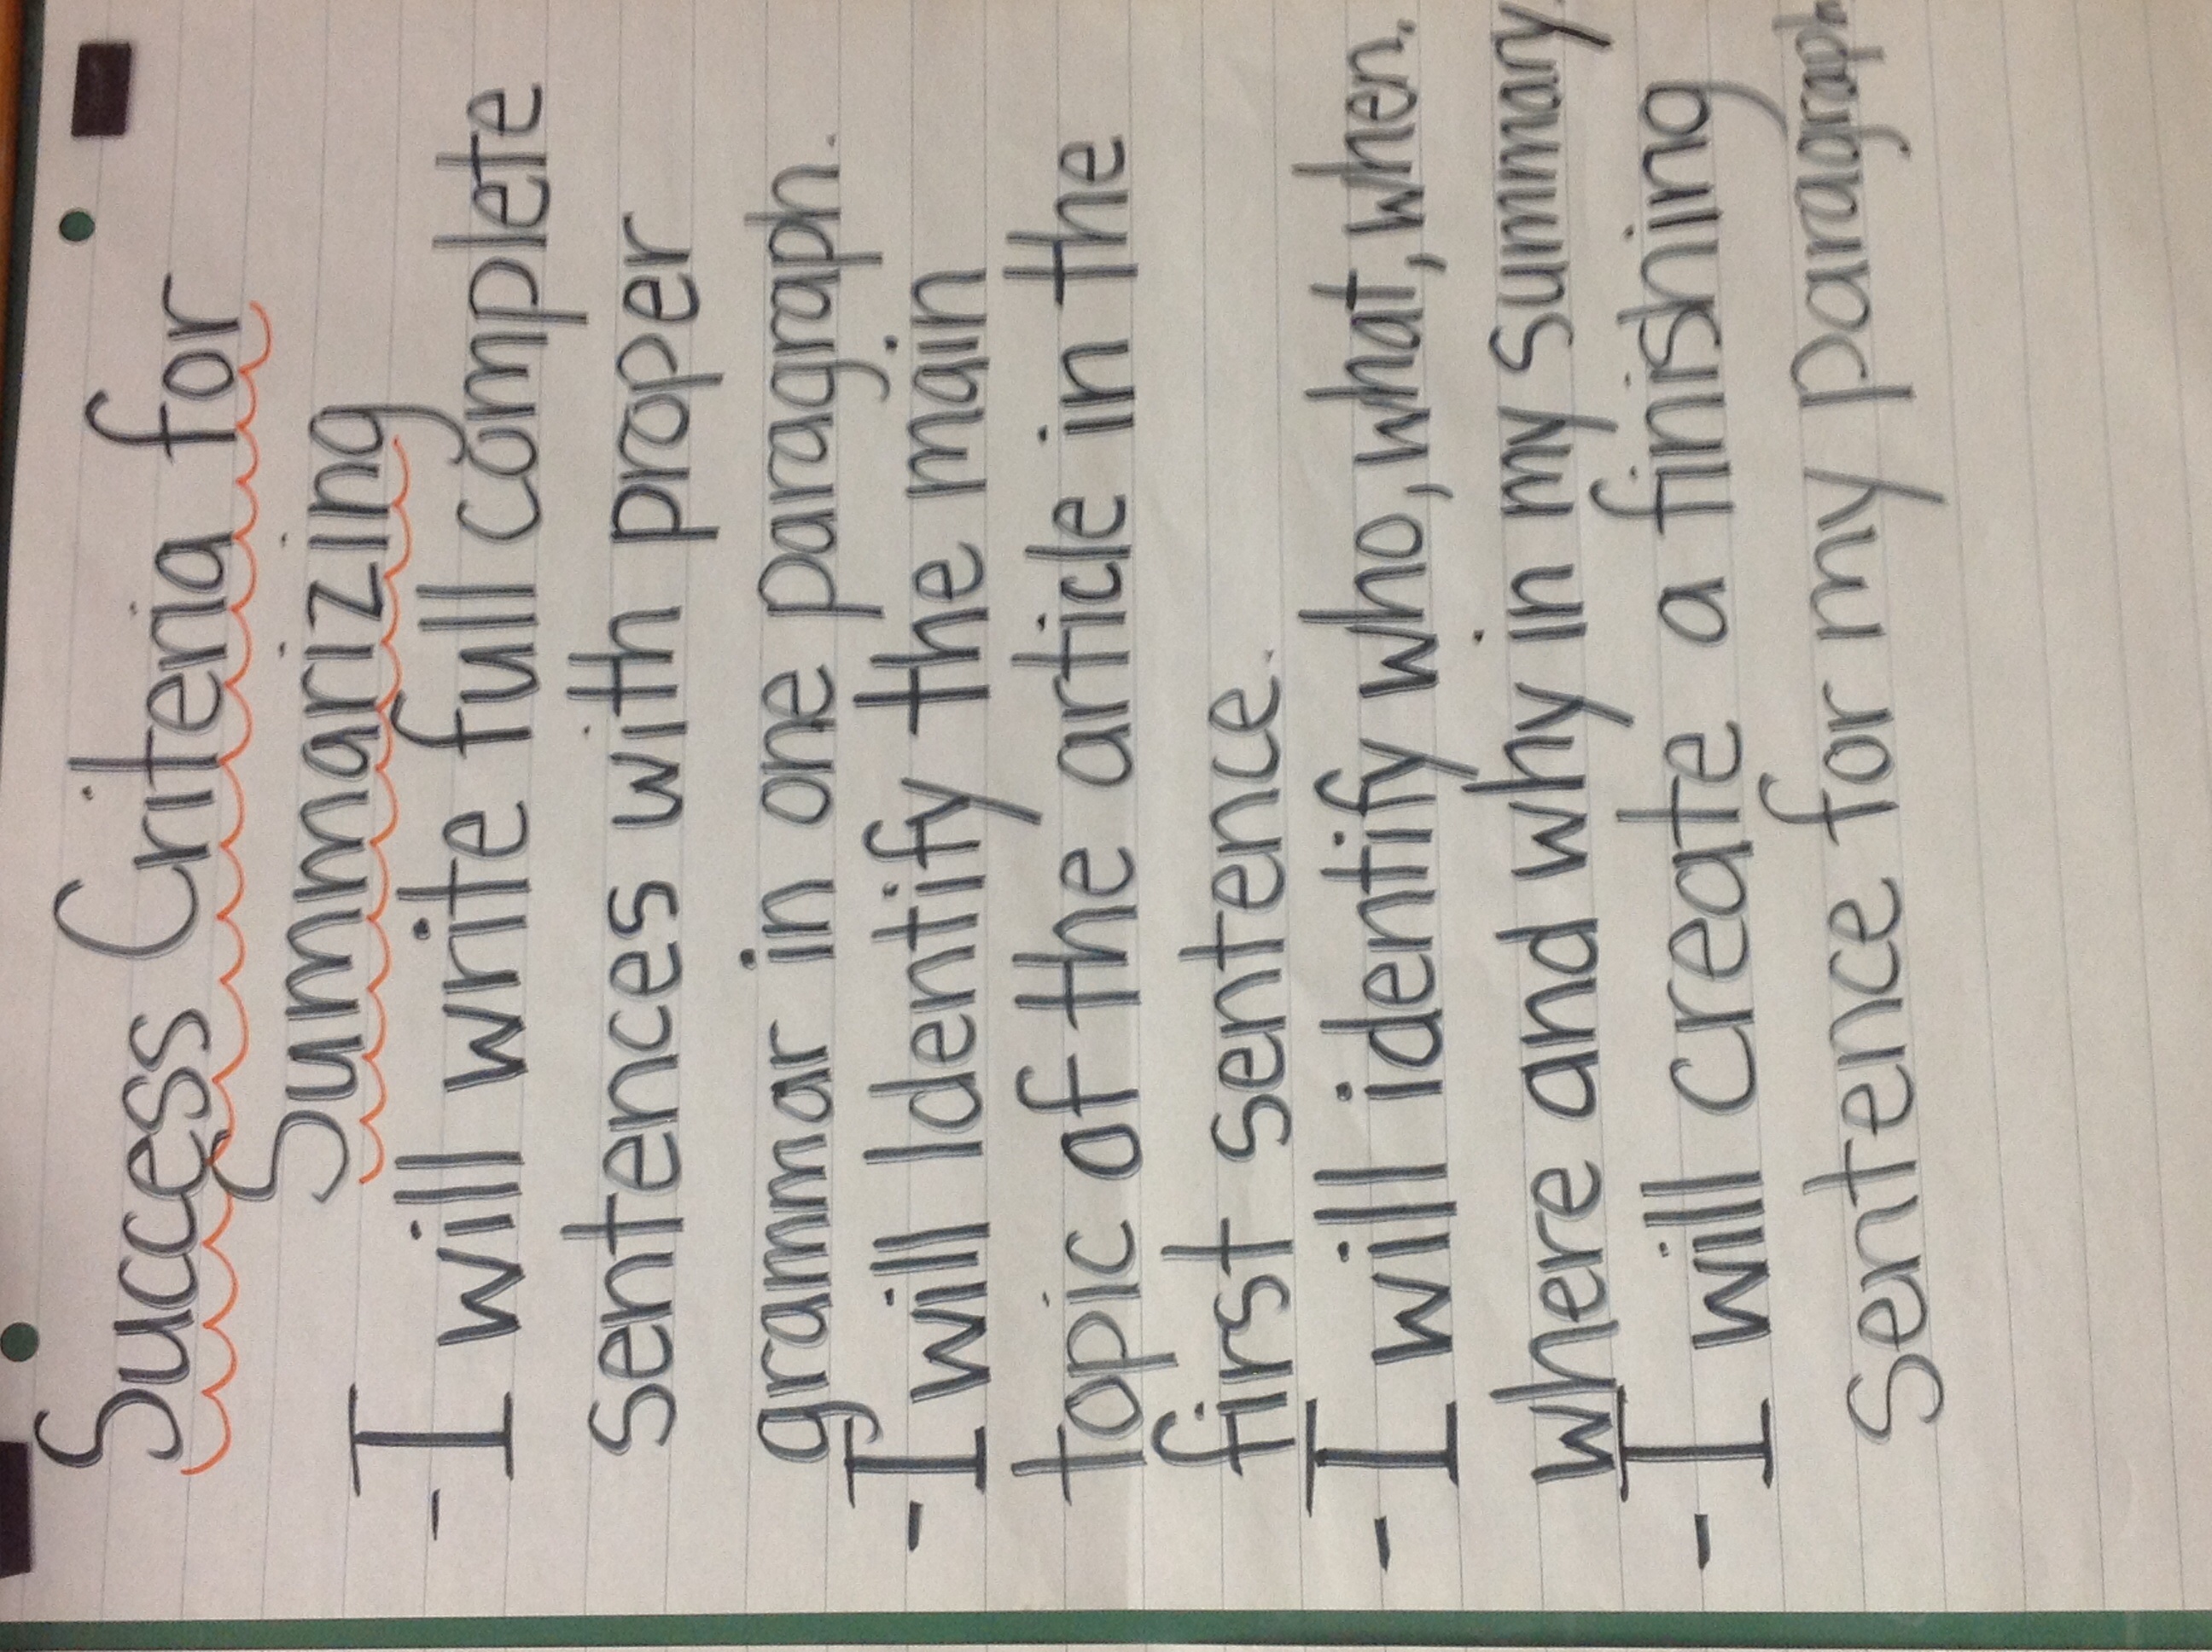 Success Criteria for
Summarizing
- I will write full complete
sentences with proper
grammar in one paragraph.
- I will Identify the main
topic of the article in the
first sentence.
- I will identify who, what, when,
where and why in my summary.
- I will create a finishing
sentence for my paragraph